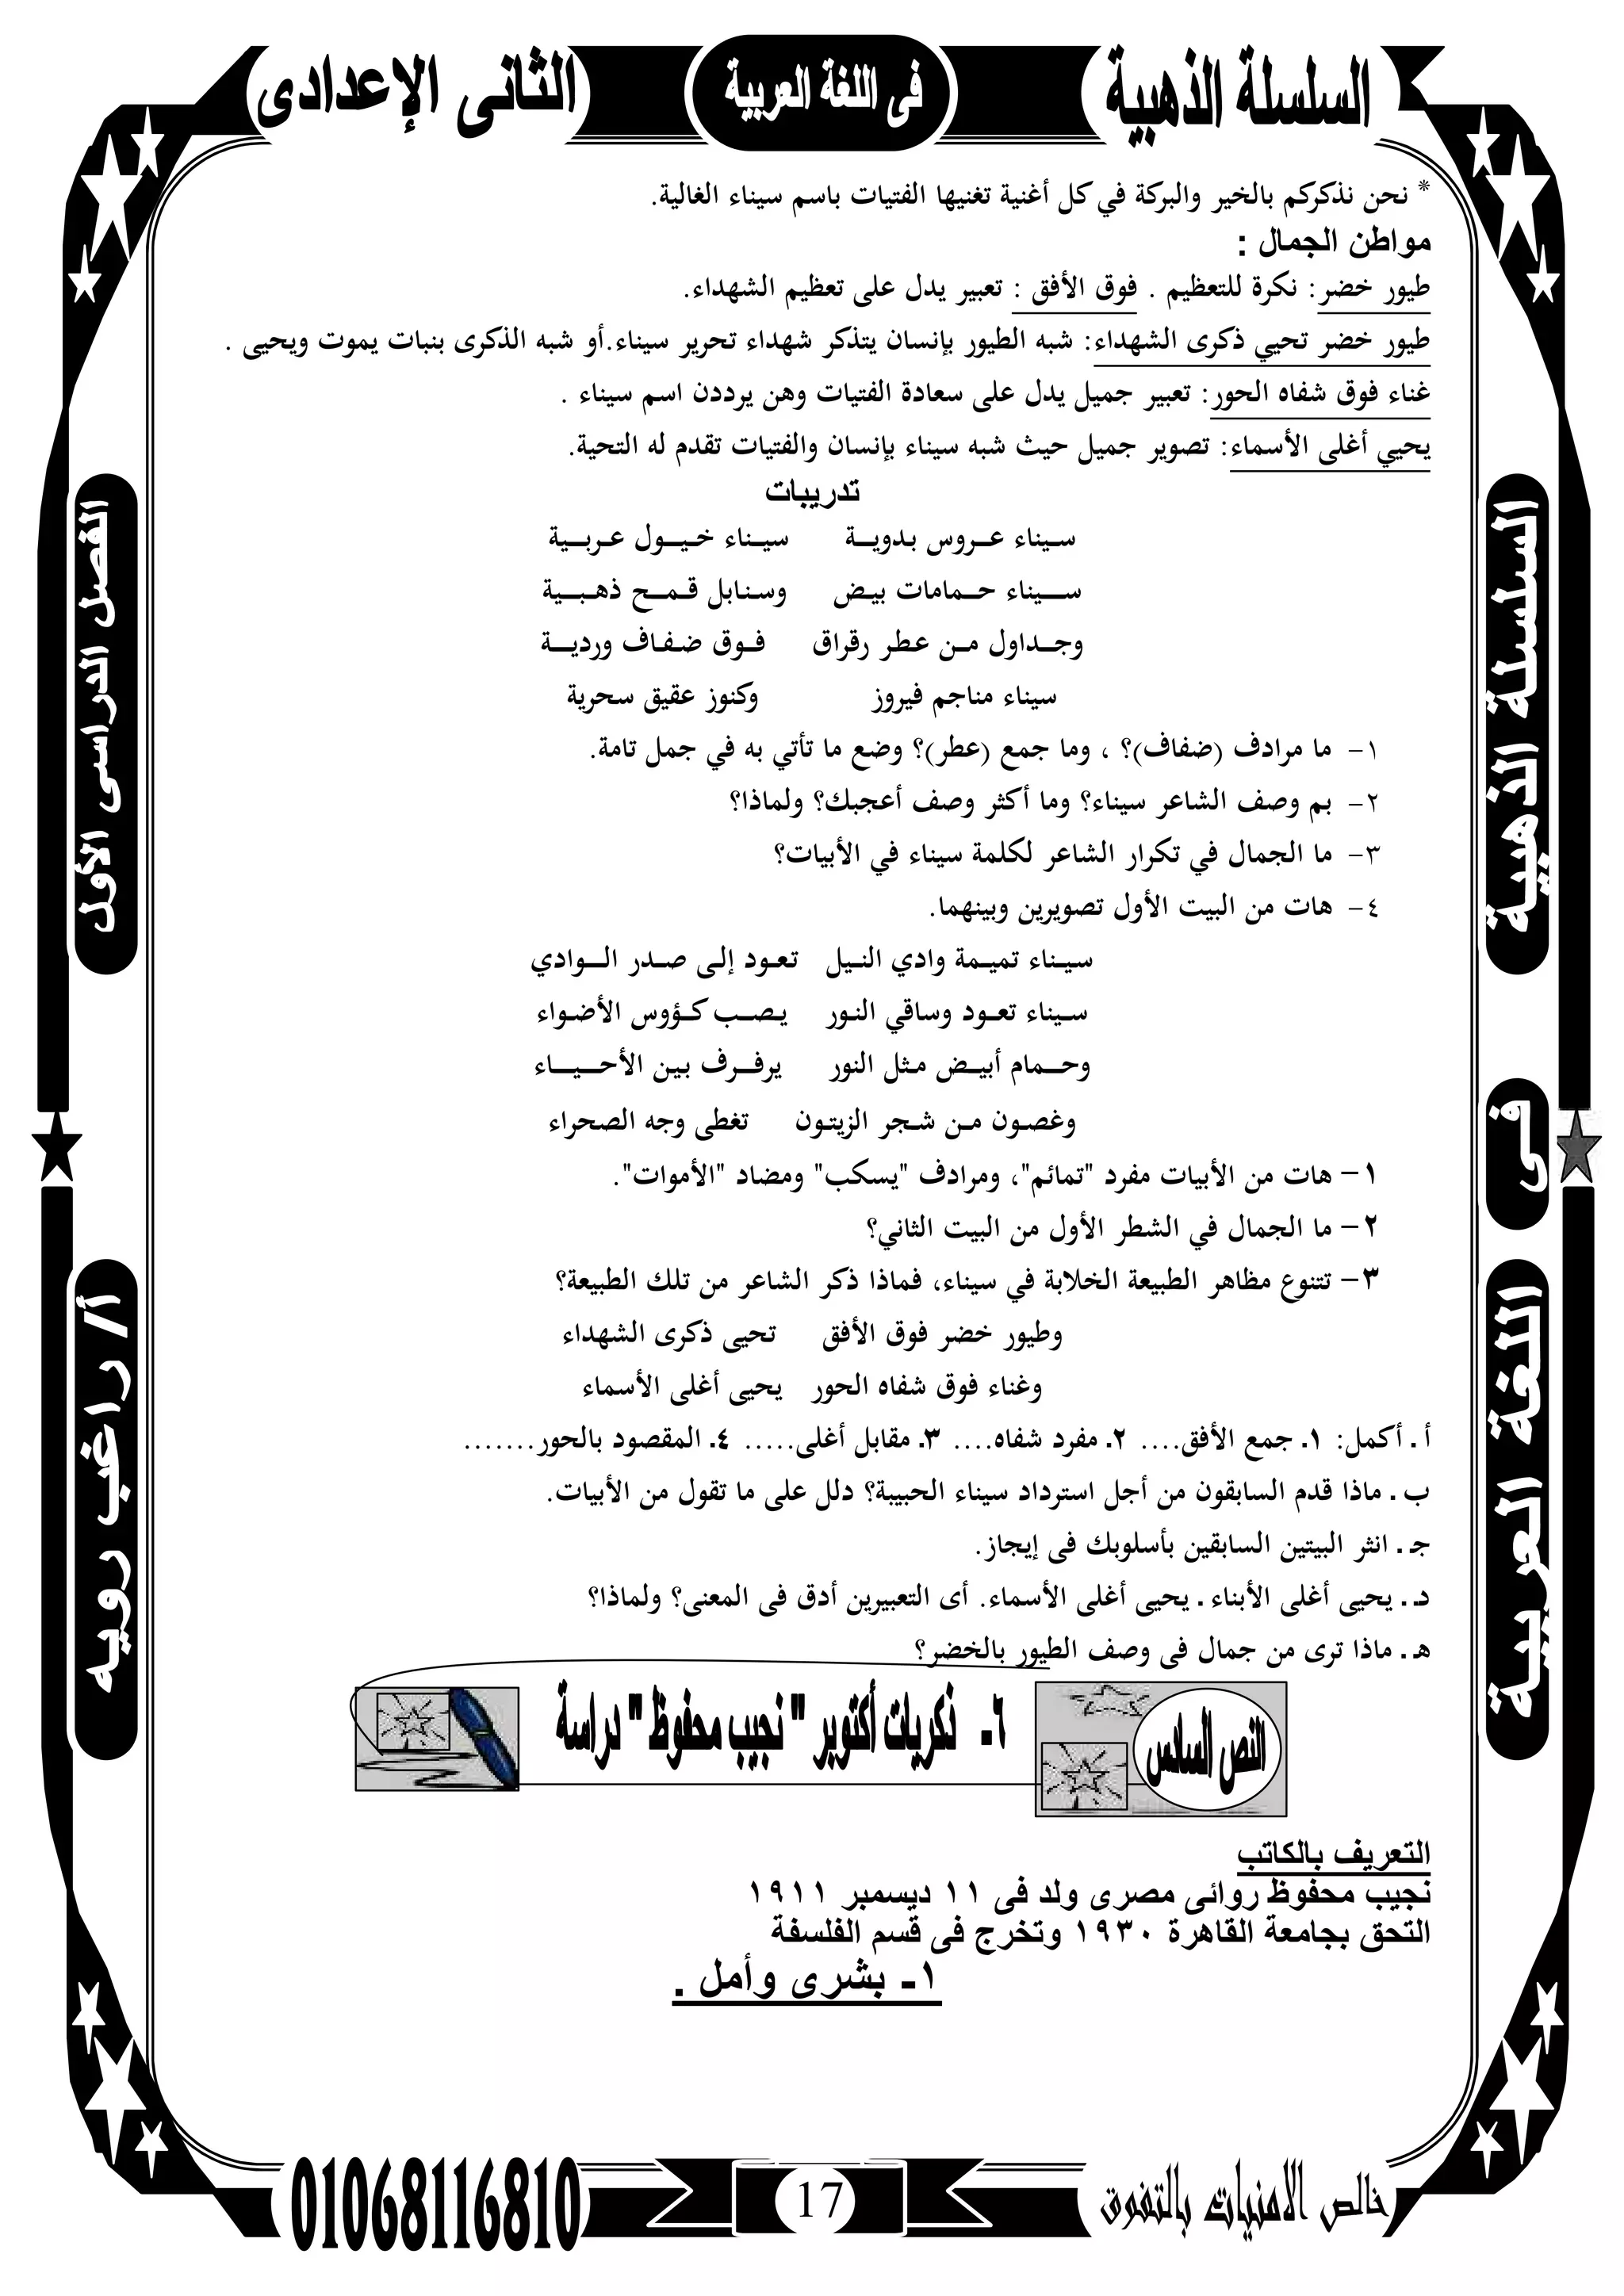 السلسلة الذهبية
فى اللغة العربية
الثانى الإعدادى
* نحن نذكركم بالخير والبركة في كل أغنية تغنيها الفتيات باسم سيناء الغالية.
مواطن الجمال :
طيور خضر: نكرة للتعظيم . فوق الأفق : تعبير يدل على تعظيم الشهداء.
طيور خضر تحيي ذكرى الشهداء: شبه الطيور بإنسان يتذكر شهداء تحرير سيناء.أو شبه الذكرى بنبات يموت ويحيى .
غناء فوق شفاه الحور: تعبير جميل يدل على سعادة الفتيات وهن يرددن اسم سيناء .
يحيي أغلى الأسماء: تصوير جميل حيث شبه سيناء بإنسان والفتيات تقدم له التحية.
تدريبات
سيناء عروس بدوية سيناء خيول عربية
سيناء حمامات بيض وسنابل قمح ذهبية
وجداول من عطر رقراق فوق ضفاف وردية
سيناء مناجم فيروز وكنوز عقيق سحرية
١- ما مرادف (ضفاف)؟ ، وما جمع (عطر)؟ وضع ما تأتي به في جمل تامة.
٢- بم وصف الشاعر سيناء؟ وما أكثر وصف أعجبك؟ ولماذا؟
٣- ما الجمال في تكرار الشاعر لكلمة سيناء في الأبيات؟
٤- هات من البيت الأول تصويرين وبينهما.
سيناء تميمة وادي النيل تعود إلى صدر الوادي
سيناء تعود وساقي النور يصب كؤوس الأضواء
وحمام أبيض مثل النور يرفرف بين الأحياء
وغصون من شجر الزيتون تغطى وجه الصحراء
١- هات من الأبيات مفرد "تمائم"، ومرادف "يسكب" ومضاد "الأموات".
٢- ما الجمال في الشطر الأول من البيت الثاني؟
٣- تتنوع مظاهر الطبيعة الخلابة في سيناء، فماذا ذكر الشاعر من تلك الطبيعة؟
وطيور خضر فوق الأفق تحيى ذكرى الشهداء
وغناء فوق شفاه الحور يحيى أغلى الأسماء
أ ـ أكمل: ١ـ جمع الأفق.... ٢ـ مفرد شفاه.... ٣ـ مقابل أغلى..... ٤ـ المقصود بالحور.......
ب ـ ماذا قدم السابقون من أجل استرداد سيناء الحبيبة؟ دلل على ما تقول من الأبيات.
جـ ـ انثر البيتين السابقين بأسلوبك فى إيجاز.
دـ ـ يحيى أغلى الأبناء ـ يحيى أغلى الأسماء. أى التعبيرين أدق فى المعنى؟ ولماذا؟
هـ ـ ماذا ترى من جمال فى وصف الطيور بالخضر؟
النص السادس
٦- ذكريات أكتوبر " نجيب محفوظ " دراسة
التعريف بالكاتب
نجيب محفوظ روائى مصرى ولد فى ١١ ديسمبر ١٩١١
التحق بجامعة القاهرة ١٩٣٠ وتخرج فى قسم الفلسفة
١- بشرى وأمل .
السلسلة الذهبية
فى
اللغة العربية
الفصل الدراسى الأول
أ/ راغب رويه
خالص الامنيات بالتفوق
17
01068116810